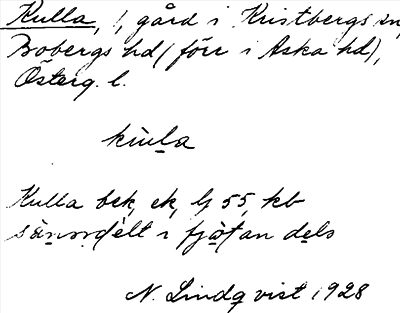 Kulla, /, gård i Kristbergs sn,
Bobergs hd (förr i Aska hd),
Österg. l.
kùla
Kulla bek, ek, lj 55, kb
dels
N. Lindqvist 1928